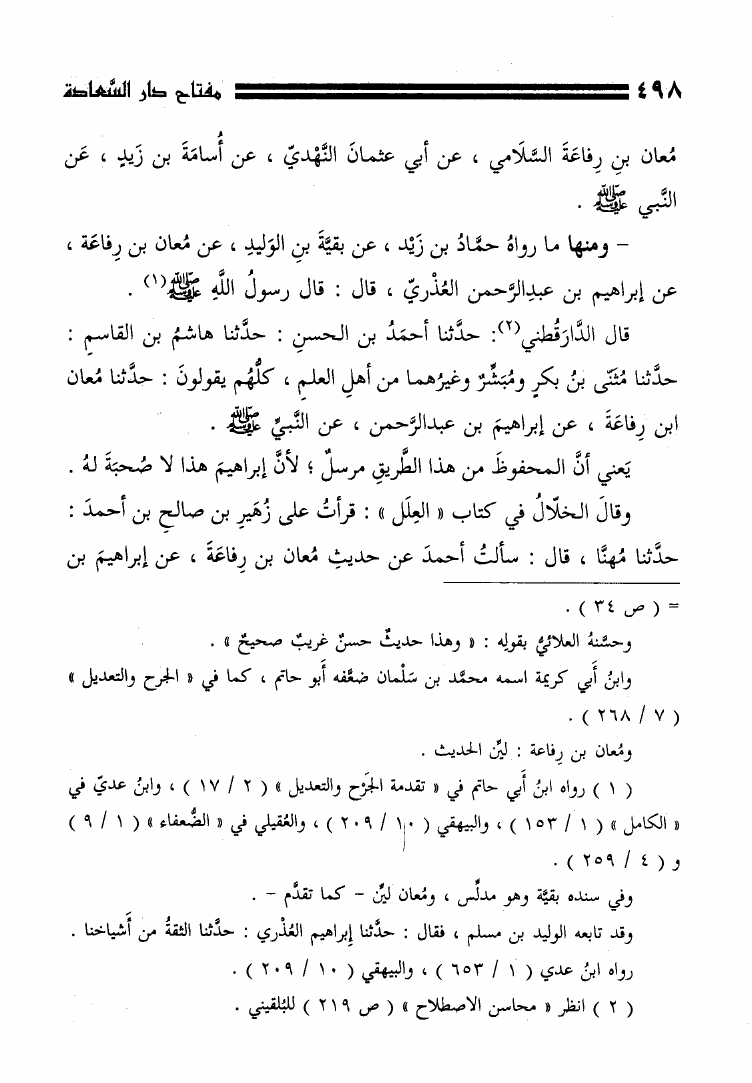 ٤٩٨ مفتاح دار السَّعادة
مُعان بنِ رِفاعَةَ السَّلَامي ، عن أبي عثمانَ النَّهْديّ ، عن أُسامَةَ بن زَيدٍ ، عَن
النَّبي ﷺ .
– ومنها ما رواهُ حمَّادُ بن زَيْد ، عن بقيَّةَ بنِ الوَليدِ ، عن مُعان بن رِفاعَة ،
عن إبراهيم بن عبدالرَّحمن العُذْريّ ، قال : قال رسولُ اللَّهِ ﷺ(١) .
قال الدَّارَقُطني(٢): حدَّثنا أحمَدُ بن الحسنِ : حدَّثنا هاشمُ بن القاسمِ :
حدَّثنا مُثنّى بنُ بكرٍ ومُبَشِّرٌ وغيرُهما من أهلِ العلمِ ، كلُّهُم يقولونَ : حدَّثنا مُعان
ابن رِفاعَةَ ، عن إبراهيمَ بن عبدالرَّحمن ، عن النَّبيِّ ﷺ .
يَعني أنَّ المحفوظَ من هذا الطَّريقِ مرسلٌ ؛ لأنَّ إبراهيمَ هذا لا صُحبَةَ لهُ .
وقالَ الخلّالُ في كتاب « العِلَل » : قرأتُ على زُهَيرِ بن صالحِ بن أحمدَ :
حدَّثنا مُهنَّا ، قال : سألتُ أحمدَ عن حديثِ مُعان بن رفاعَةَ ، عن إبراهيمَ بن
= ( ص ٣٤ ) .
وحسَّنهُ العلائيُّ بقولِه : « وهذا حديثٌ حسنٌ غريبٌ صحيحٌ » .
وابنُ أبي كريمة اسمه محمَّد بن سَلْمان ضعَّفه أبو حاتم ، كما في « الجرح والتعديل »
( ٧ / ٢٦٨ ) .
ومُعان بن رِفاعة : ليِّن الحديث .
( ١ ) رواه ابنُ أبي حاتم في « تقدمة الجَرْح والتعديل » ( ٢ / ١٧ ) ، وابنُ عديّ في
« الكامل » ( ١ / ١٥٣ ) ، والبيهقي ( ١٠ / ٢٠٩ ) ، والعُقيلي في « الضُّعفاء » ( ١ / ٩ )
و ( ٤ / ٢٥٩ ) .
وفي سنده بقيَّة وهو مدلِّس ، ومُعان ليِّن – كما تقدَّم – .
وقد تابعه الوليد بن مسلم ، فقال : حدَّثنا إبراهيم العُذْري : حدَّثنا الثقةُ من أشياخنا .
رواه ابنُ عدي ( ١ / ٦٥٣ ) ، والبيهقي ( ١٠ / ٢٠٩ ) .
( ٢ ) انظر « محاسن الاصطلاح » ( ص ٢١٩ ) للبُلقيني .